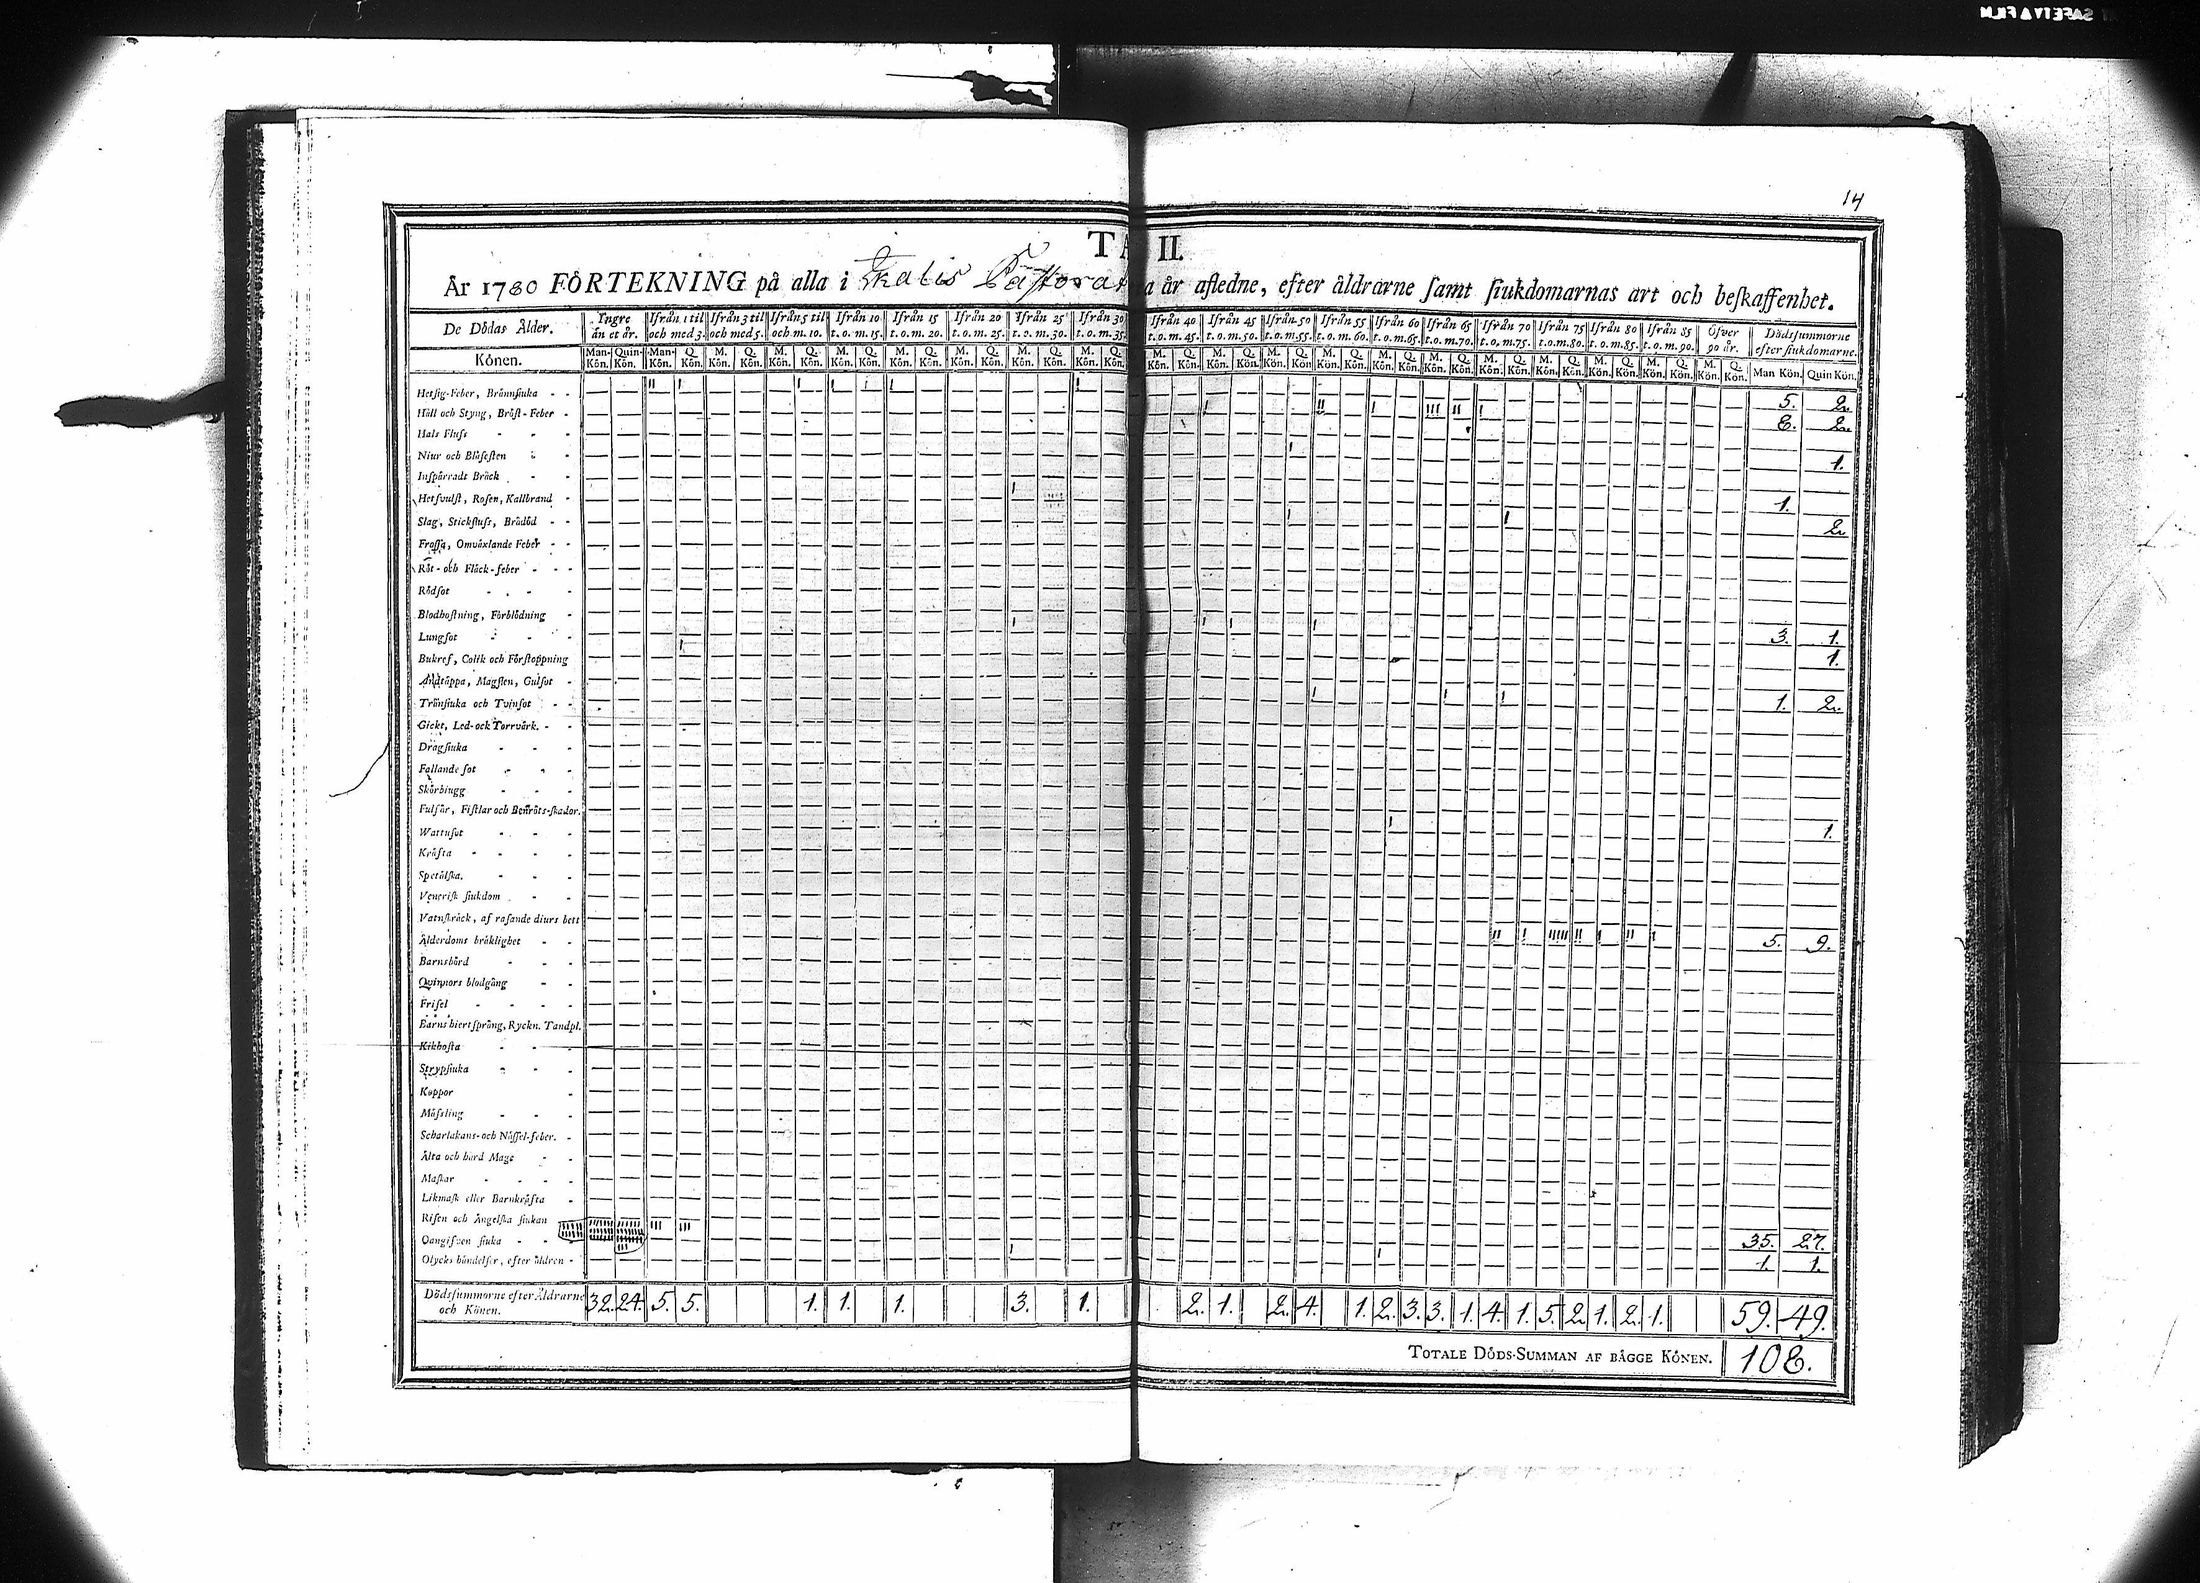 SAFETY FILM
14
TA II.
År 1780 FÖRTEKNING på alla i Skatis Pastorat a år afledne, efter åldrarne samt siukdomarnas art och beskaffenhet.
De Dödas Ålder. Yngre än et år. Ifrån 1 til och med 3. Ifrån 3 til och med 5. Ifrån 5 til och m. 10. Ifrån 10 t. o. m. 15. Ifrån 15 t. o. m. 20. Ifrån 20 t. o. m. 25. Ifrån 25 t. o. m. 30. Ifrån 30 t. o. m. 35. Ifrån 40 t. o. m. 45. Ifrån 45 t. o. m. 50. Ifrån 50 t. o. m. 55. Ifrån 55 t. o. m. 60. Ifrån 60 t. o. m. 65. Ifrån 65 t. o. m. 70. Ifrån 70 t. o. m. 75. Ifrån 75 t. o. m. 80. Ifrån 80 t. o. m. 85. Ifrån 85 t. o. m. 90. Öfver 90 år. Dödssummorne efter siukdomarne.
Könen. Man-Kön. Quin-Kön. Man-Kön. Q. Kön. M. Kön. Q. Kön. M. Kön. Q. Kön. M. Kön. Q. Kön. M. Kön. Q. Kön. M. Kön. Q. Kön. M. Kön. Q. Kön. M. Kön. Q. Kön. M. Kön. Q. Kön. M. Kön. Q. Kön. M. Kön. Q. Kön. M. Kön. Q. Kön. M. Kön. Q. Kön. M. Kön. Q. Kön. M. Kön. Q. Kön. M. Kön. Q. Kön. M. Kön. Q. Kön. M. Kön. Q. Kön. M. Kön. Q. Kön. Man Kön. Quin Kön.
Hetsig-Feber, Brännsiuka 5. 2.
Håll och Styng, Bröst-Feber 8. 2.
Hals Fluss
Niur och Blåsesten 1.
Inspärradt Bråck
Hetsvulst, Rosen, Kallbrand 1.
Slag, Stickfluss, Brådöd 2.
Frossa, Omväxlande Feber
Röt- och Fläck-feber
Rödsot
Blodhostning, Förblödning
Lungsot 3. 1.
Bukref, Colik och Förstoppning 1.
Andtäppa, Magsten, Gulsot
Trånsiuka och Tvinsot 1. 2.
Gickt, Led-ock Torrvärk.
Dragsiuka
Fallande sot
Skörbiugg
Fulsår, Fistlar och Benröts-skador.
Wattusot 1.
Kräfta
Spetälska.
Venerisk siukdom
Vatnskräck, af rasande diurs bett
Ålderdoms bräklighet 5. 9.
Barnsbörd
Qvinnors blodgång
Frisel
Barns hiertsprång, Ryckn. Tandpl.
Kikhosta
Strypsiuka
Koppor
Mässling
Scharlakans- och Nässel-feber.
Älta och hård Mage
Maskar
Likmask eller Barnkräfta
Risen och Ängelska siukan
Oangifven siuka 35. 27.
Olycks händelser, efter åldren 1. 1.
Dödssummorne efter Åldrarne och Könen. 32. 24. 5. 5. 1. 1. 1. 3. 1. 2. 1. 2. 4. 1. 2. 3. 3. 1. 4. 1. 5. 2. 1. 2. 1. 59. 49.
TOTALE DÖDS-SUMMAN AF BÅGGE KÖNEN. 108.